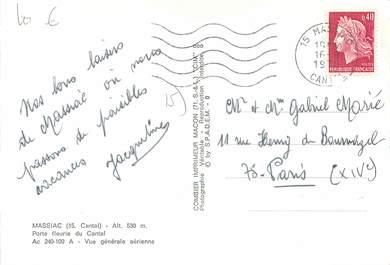 10 €
Nos bons baisers
de Massiac où nous
passons de paisibles
vacances Jacqueline
MASSIAC (15. Cantal) - Alt. 530 m.
Porte fleurie du Cantal
Ac 240-100 A - Vue générale aérienne
COMBIER IMPRIMEUR MACON (71, S.-&-L.) "CIM"
Photographie Véritable - Reproduction Interdite
© by S.P.A.D.E.M. - 0
15)
0,40
REPUBLIQUE FRANÇAISE
15 MAS
16
19
CANTAL
Mr & Mme Gabriel
11 rue Henry de
75 - Paris
(XIVe)